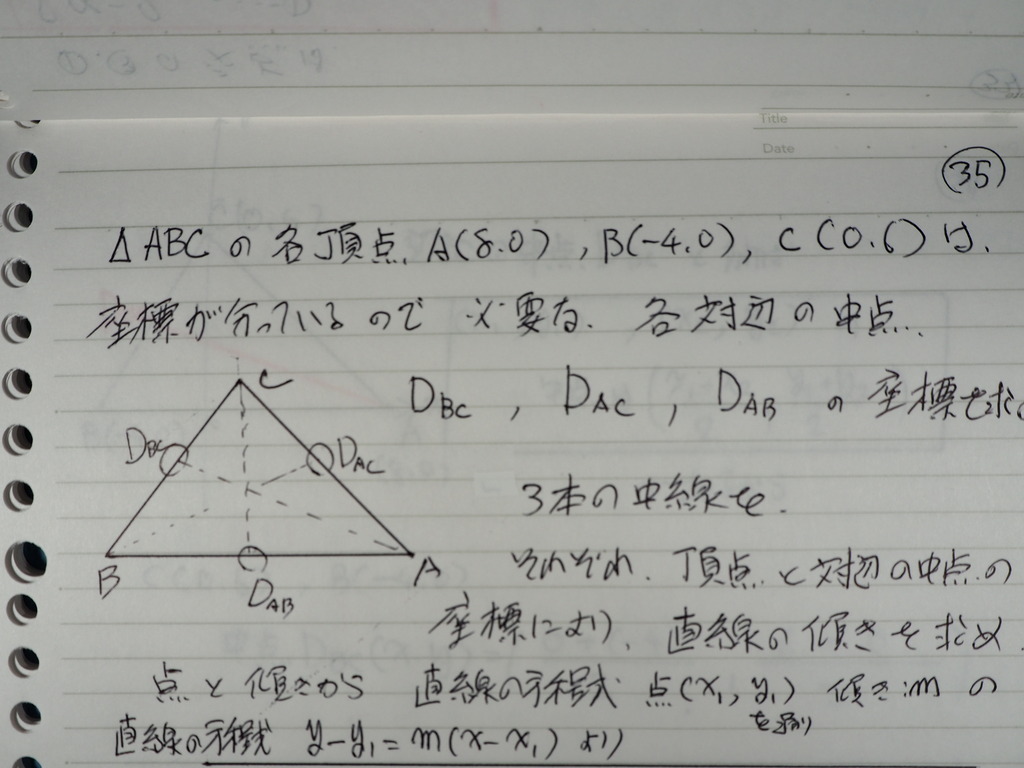 Title
Date
㉟
△ABCの各頂点, A(8.0), B(-4.0), C(0.6)は,
座標が分っているので 必要な、各対辺の中点..
DBC, DAC, DABの座標を求
C
DBC
DAC
B
A
DAB
3本の中線を.
それぞれ、頂点と対辺の中点の
座標により、直線の傾きを求め.
点と傾きから 直線の方程式 点(x₁, y₁) 傾き:mの
を通り
直線の方程式 y-y₁=m(x-x₁)より